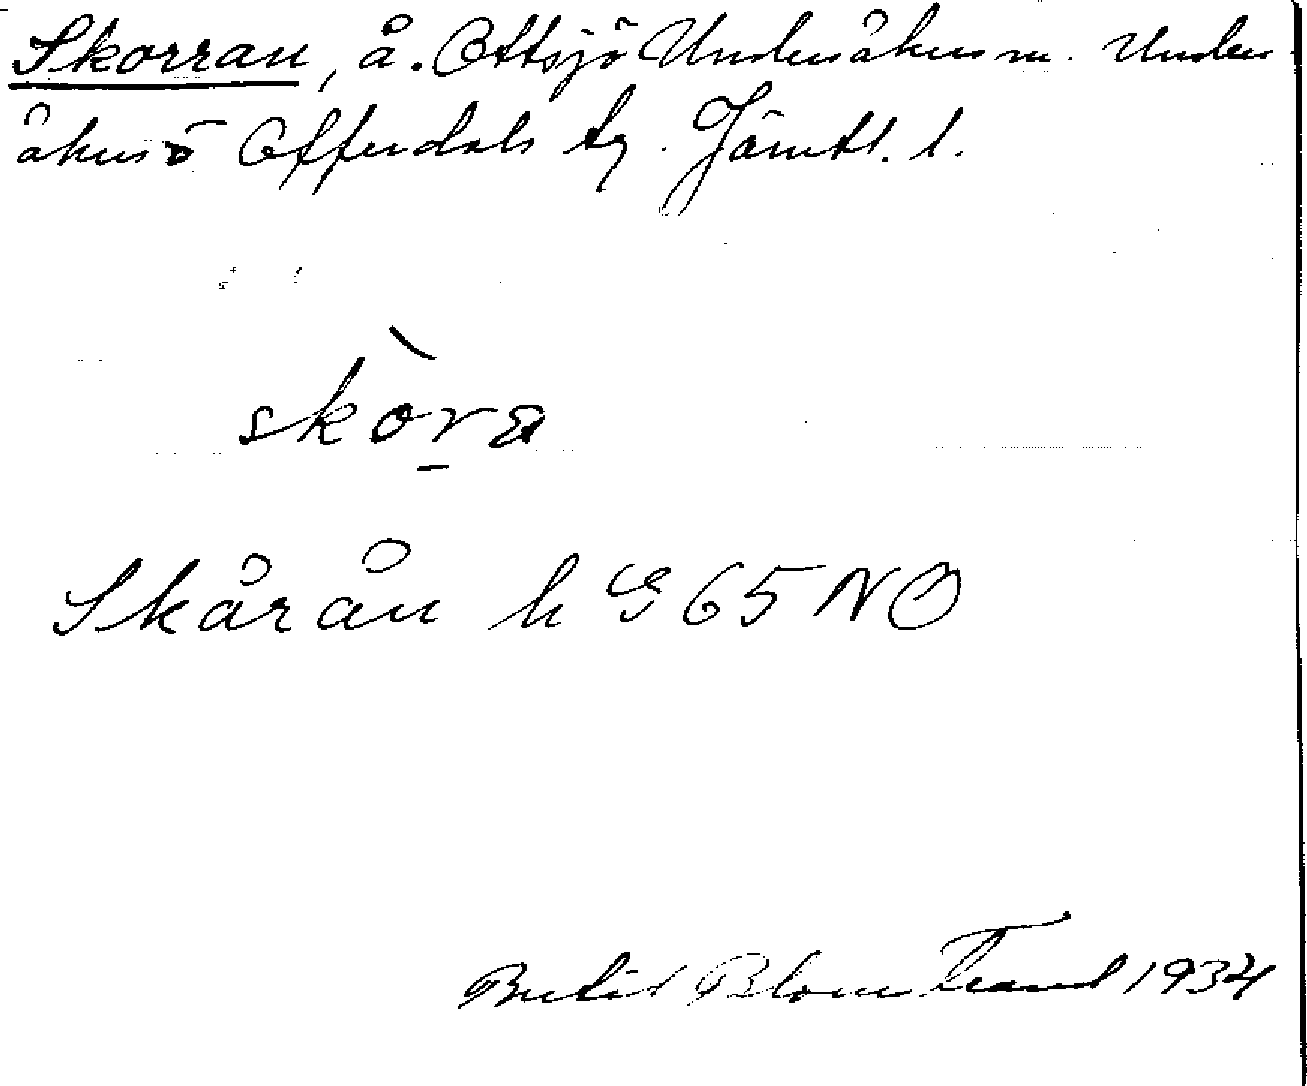 Skorran, å. Ottsjö Undersåkers sn. Unders-
åkers o Offerdals tg. Jämtl. l.
skòra
Skårån k G 65 NO
Bertil Blomstrand 1934